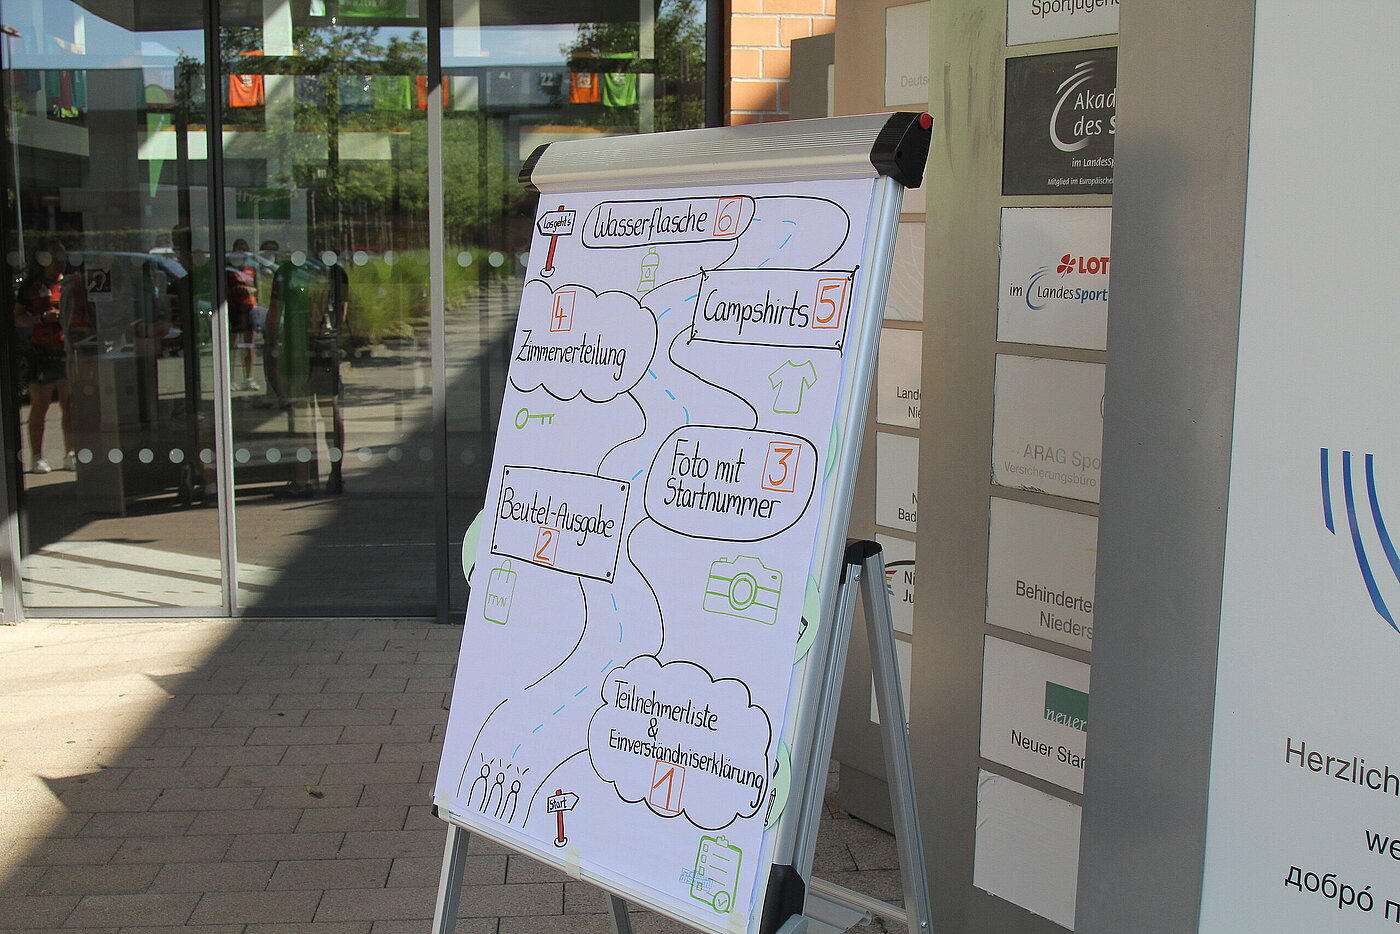 Los geht's
Wasserflasche 6
Campshirts 5
4
Zimmerverteilung
Foto mit 3
Startnummer
Beutel-Ausgabe
2
TTVN
Teilnehmerliste
&
Einverständniserklärung
1
Start
Sportjugen
Akad
des S
im LandesSp
Mitglied im Europäischen
LOT
im LandesSport
ARAG Spo
Versicherungsbüro
Behinderte
Nieders
neuer
Neuer Star
Deuts
Land
Nie
N
Bad
Ni
Ju
Herzlich
we
добро́ п